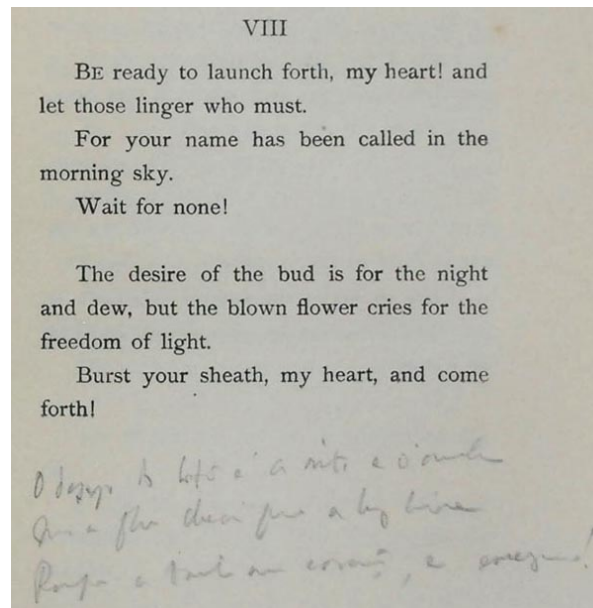 VIII
BE ready to launch forth, my heart! and
let those linger who must.
For your name has been called in the
morning sky.
Wait for none!
The desire of the bud is for the night
and dew, but the blown flower cries for the
freedom of light.
Burst your sheath, my heart, and come
forth!
O desejo do botão é a noite e o orvalho
a flor
coração, e